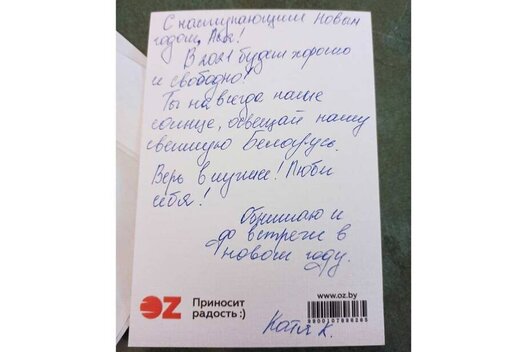 С наступающим Новым
годом, Ася!
В 2021 будет хорошо
и свободно!
Ты навсегда наше
солнце, освещай нашу
светлую Беларусь.
Верь в лучшее! Люби
себя!
Обнимаю и
до встречи в
новом году.
OZ Приносит
радость :)
www.oz.by
Катя К.